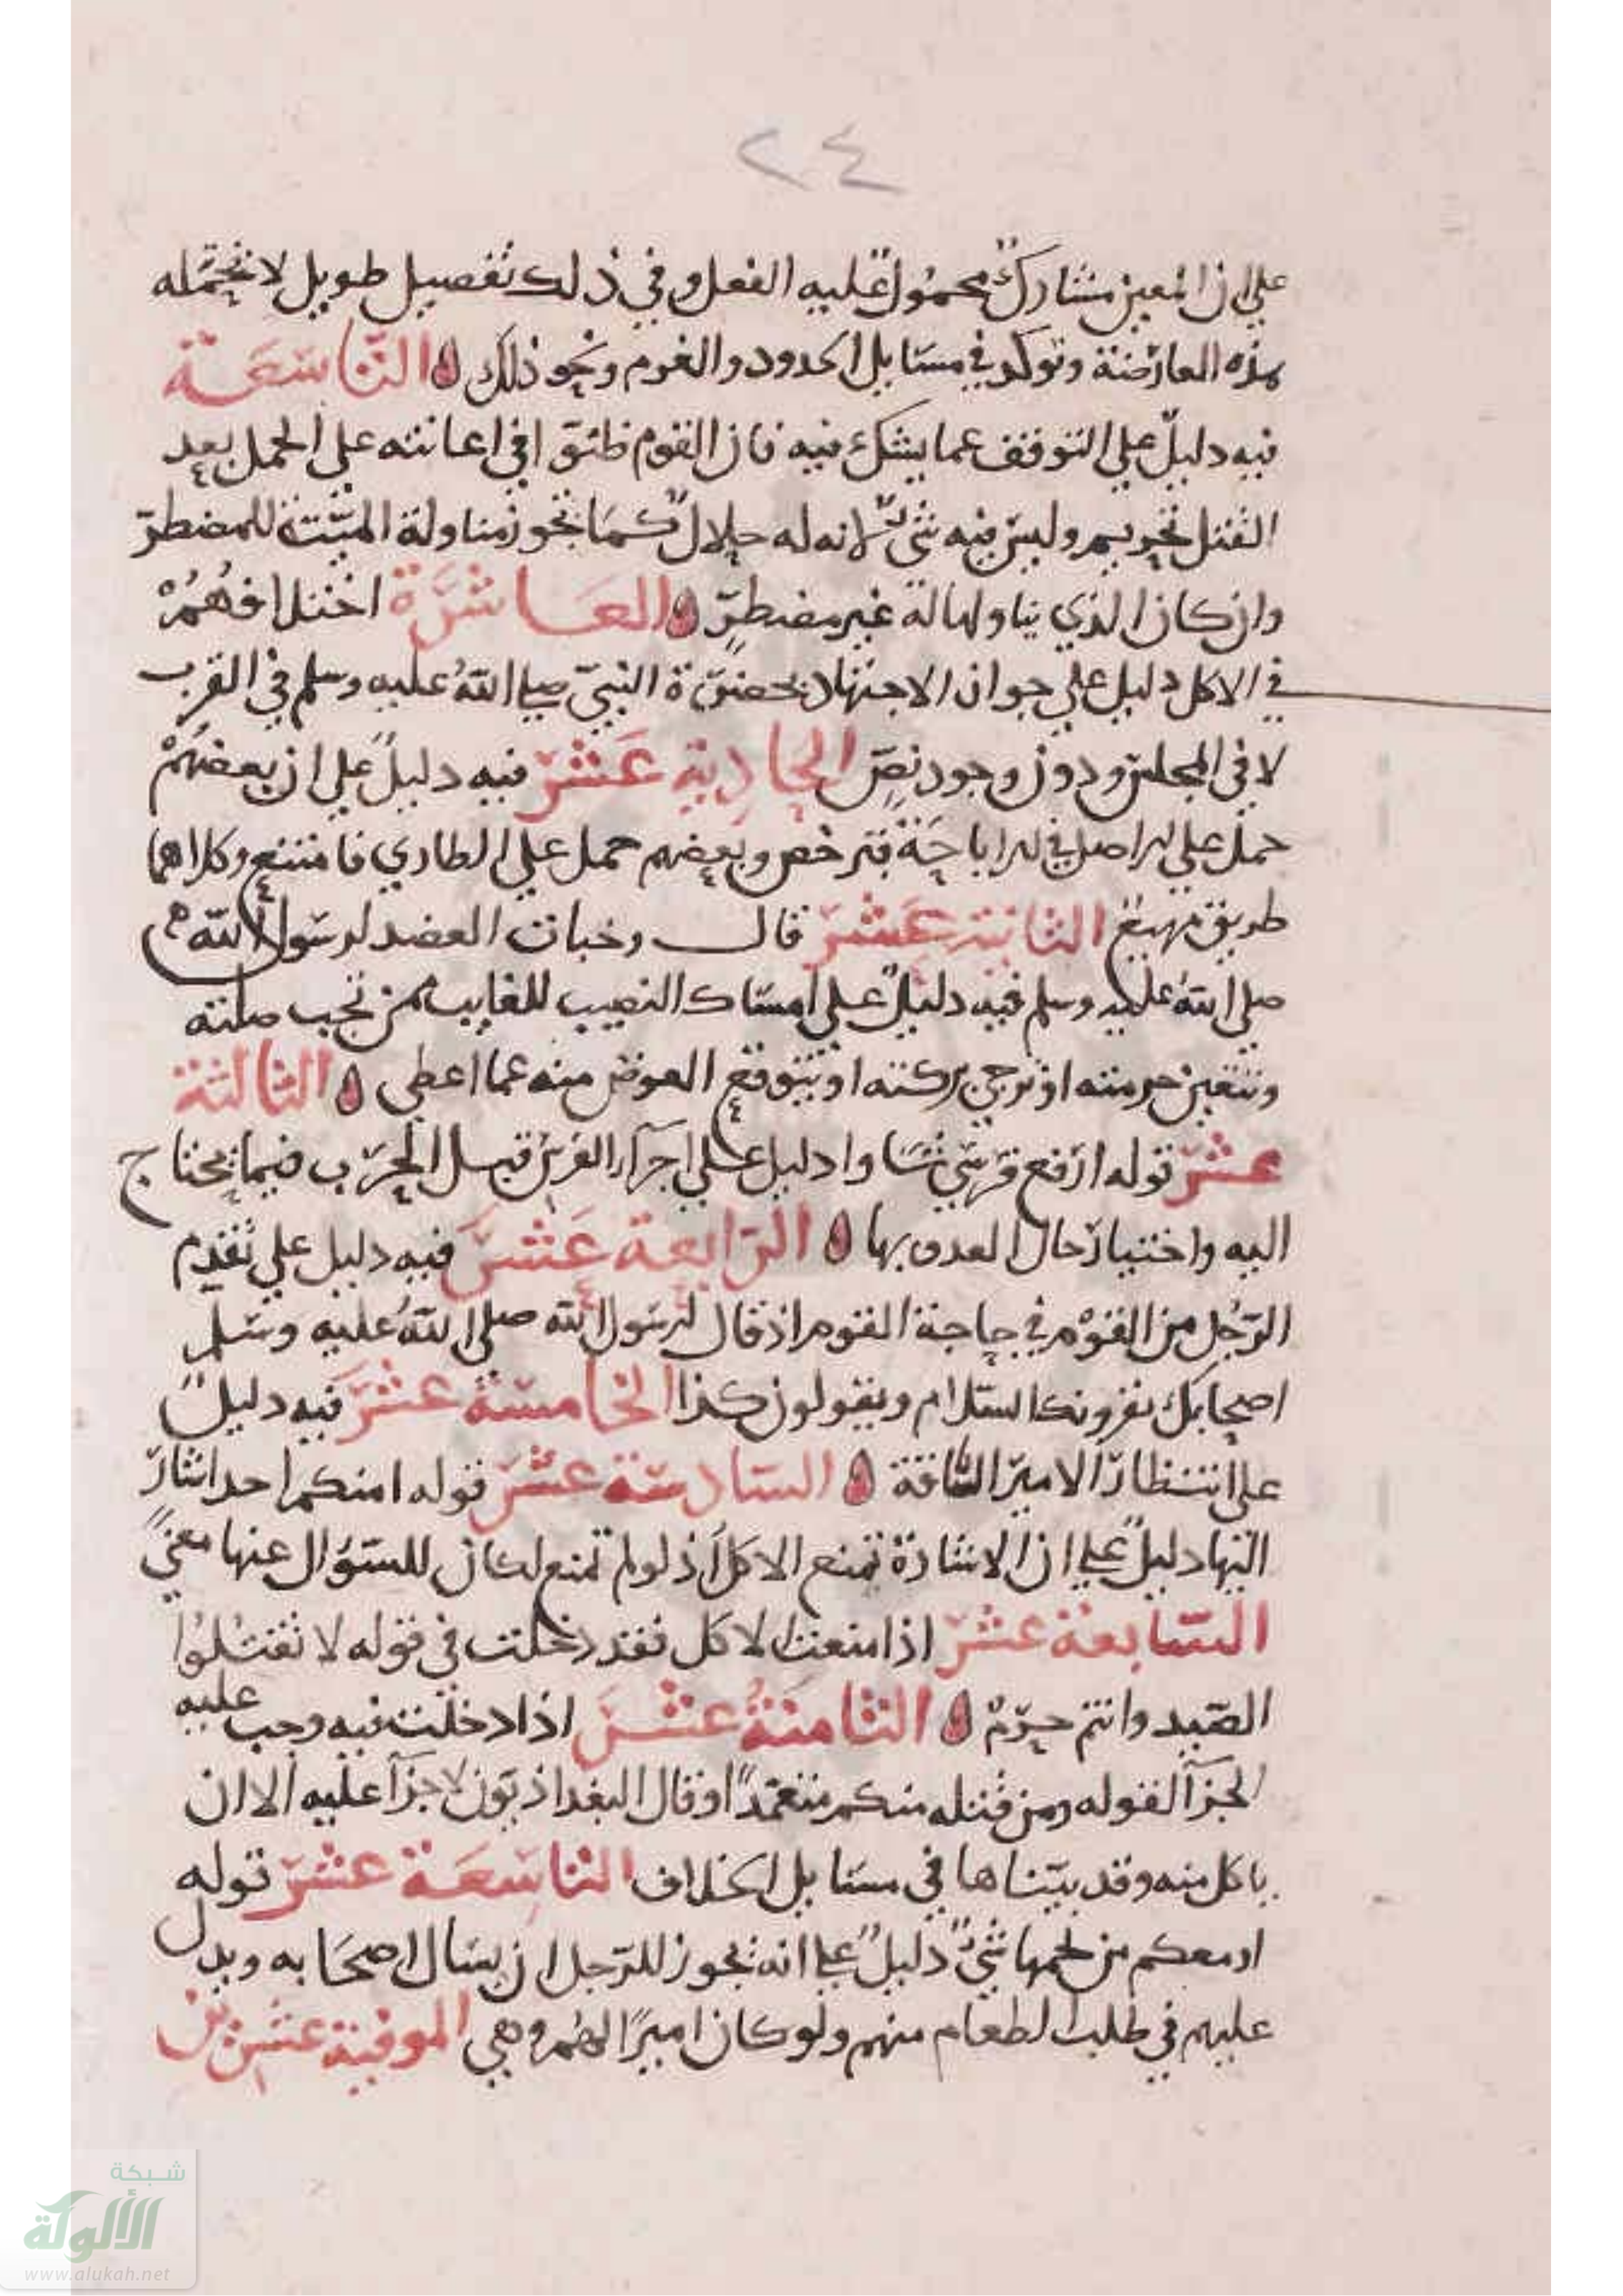 ٢٤
على ان المعين مشارك محمول عليه الفعل وفي ذلك تفصيل طويل لا تحتمله
هذه العارضة وتوكد في مسايل الحدود والغرم ونحو ذلك التاسعة
فيه دليل على التوقف عما يشك فيه فان القوم في اعانته على الحمل بعد
القتل تحريم وليس فيه شي لانه له حلال كما تجوز مناولة الميتة للمضطر
وان كان الذي يناولها له غير مضطر العاشرة اختلافهم
في الاكل دليل على جواز الاجتهاد بحضرة النبي صلى الله عليه وسلم في القرب
لا في المجلس ودون وجود نص الحادية عشر فيه دليل على ان بعضهم
حمل على الاصل في الاباحة فترخص وبعضهم حمل على الطاري فامتنع وكلاهما
طريق مهيع الثانية عشر قال وخبات العضد لرسول الله
صلى الله عليه وسلم فيه دليل على امساك النصيب للغايب ممن تجب صلته
وتتعين حرمته او ترجى بركته او يتوقع العوض منه عما اعطى الثالثة
عشر قوله ارفع فرسي شاوا دليل على اجراء الفرس قبل الحرب فيما يحتاج
اليه واختبار حال العدو بها الرابعة عشر فيه دليل على تقدم
الرجل من القوم في حاجة القوم اذ قال لرسول الله صلى الله عليه وسلم
اصحابك يقرونك السلام ويقولون كذا الخامسة عشر فيه دليل
على انتظار الامير الساقة السادسة عشر قوله امنكم احد اشار
اليها دليل على ان الاشارة تمنع الاكل اذ لو لم تمنع لكان للسؤال عنها معنى
السابعة عشر اذا منعت الاكل فقد دخلت في قوله لا تقتلوا
الصيد وانتم حرم الثامنة عشر اذا دخلت فيه وجب عليه
الجزآ لقوله ومن قتله منكم متعمدا وقال البغداذيون لا جزآ عليه الا ان
ياكل منه وقد بيناها في مسايل الخلاف التاسعة عشر قوله
امعكم من لحمها شي دليل على انه يجوز للرجل ان يسال اصحابه ويدل
عليهم في طلب الطعام منهم ولو كان اميرا لهم وهي الموفية عشرين
شبكة
الألوكة
www.alukah.net